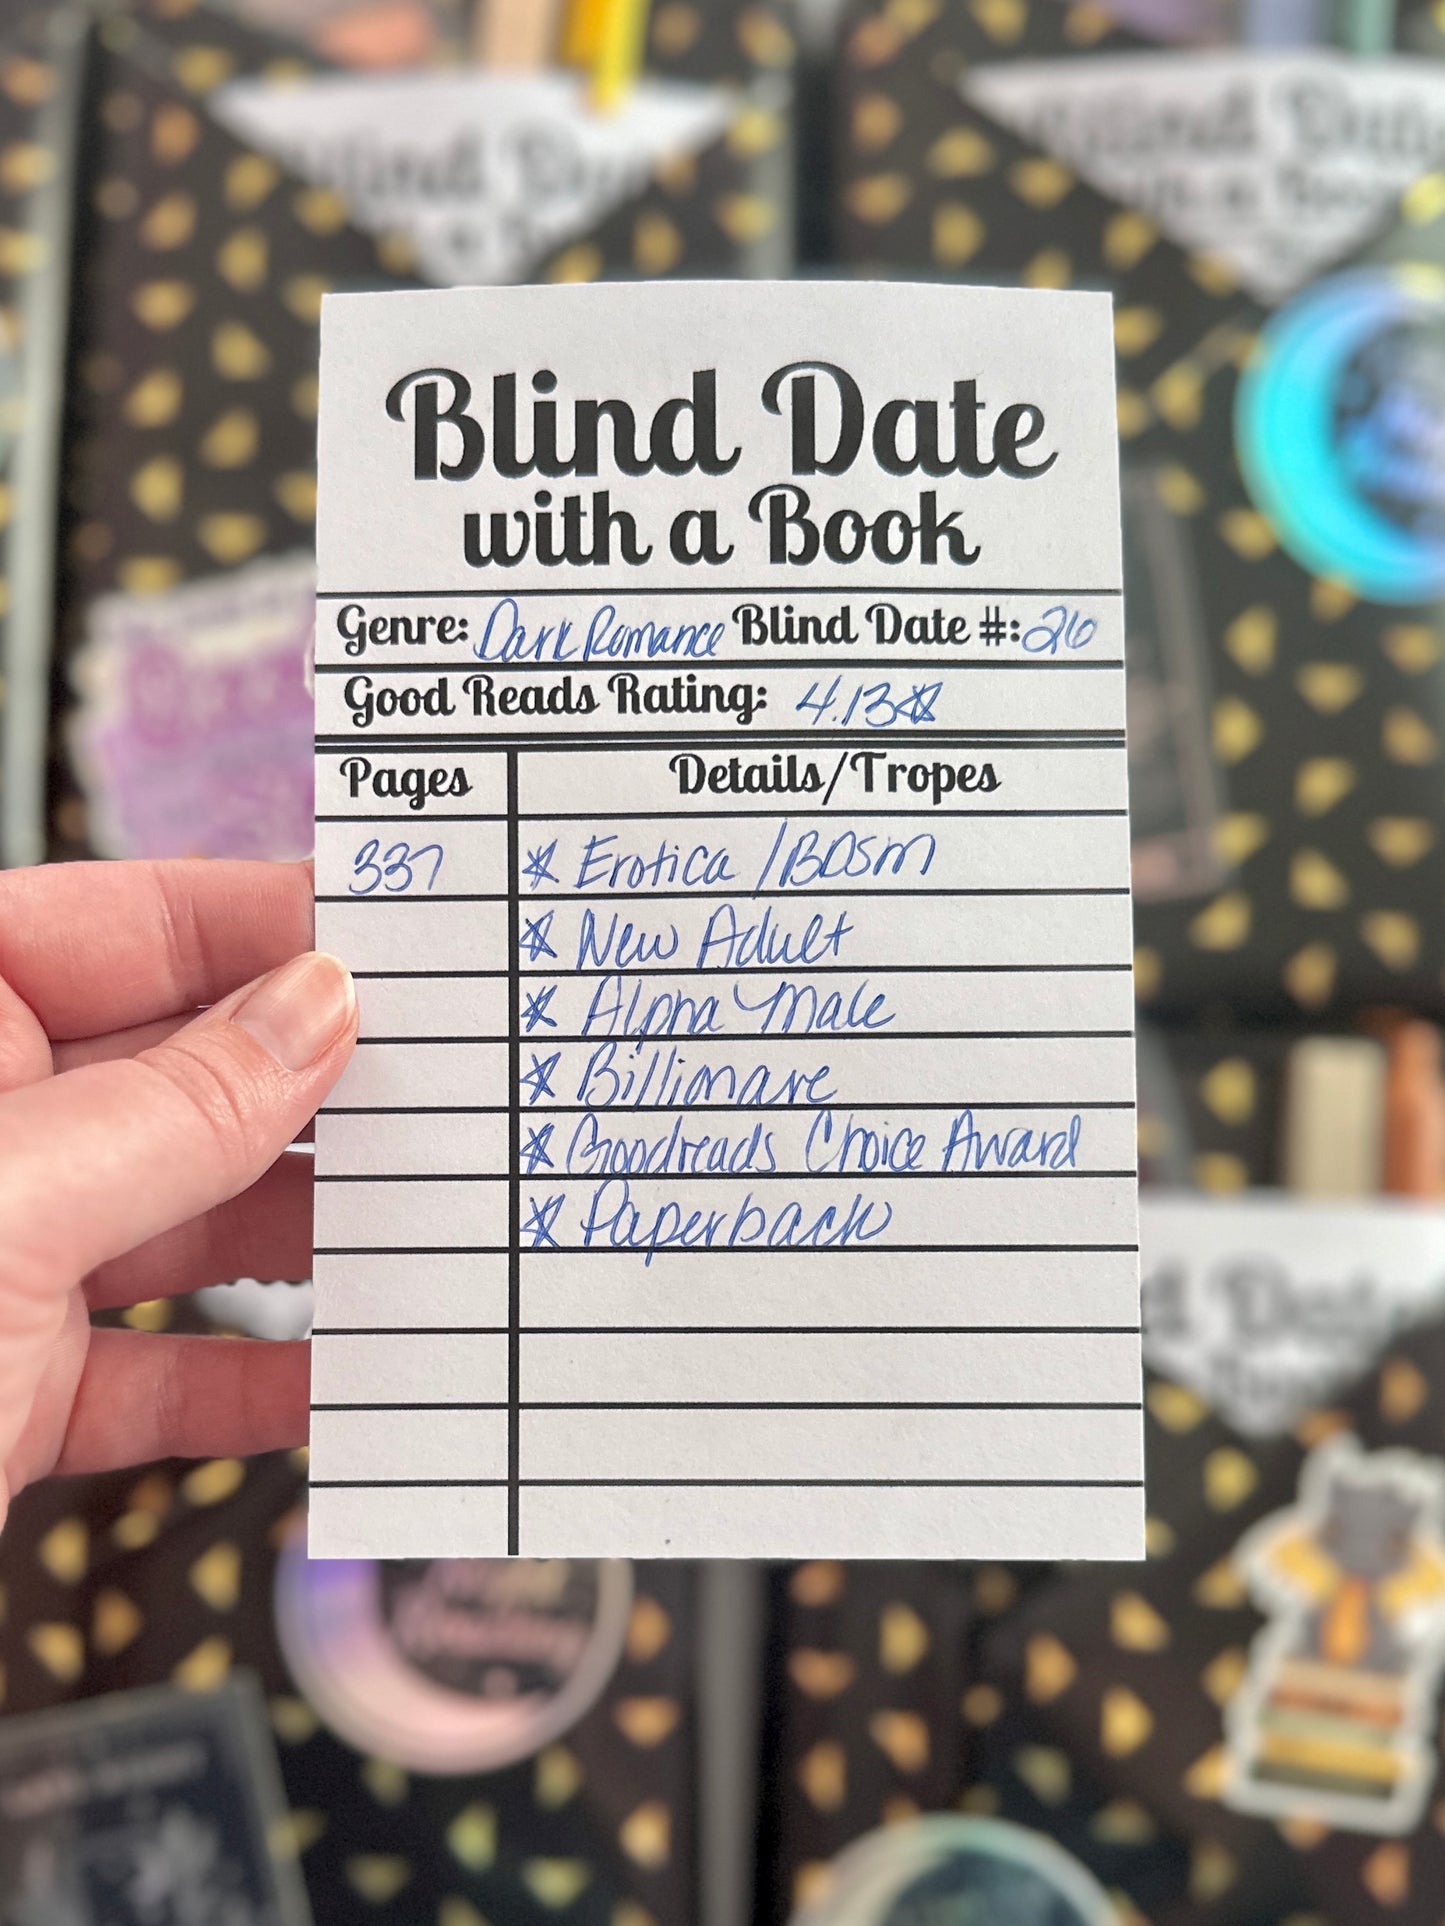 Blind Date
with a Book
Genre: Dark Romance Blind Date #: 26
Good Reads Rating: 4.13☆
Pages Details/Tropes
337 ☆ Erotica / BDSM
☆ New Adult
☆ Alpha Male
☆ Billionare
☆ Goodreads Choice Award
☆ Paperback
Blind Date
with a Book